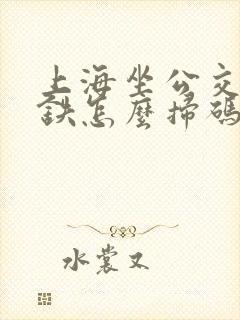 上海坐公交
鉄怎麼掃碼
水裳又